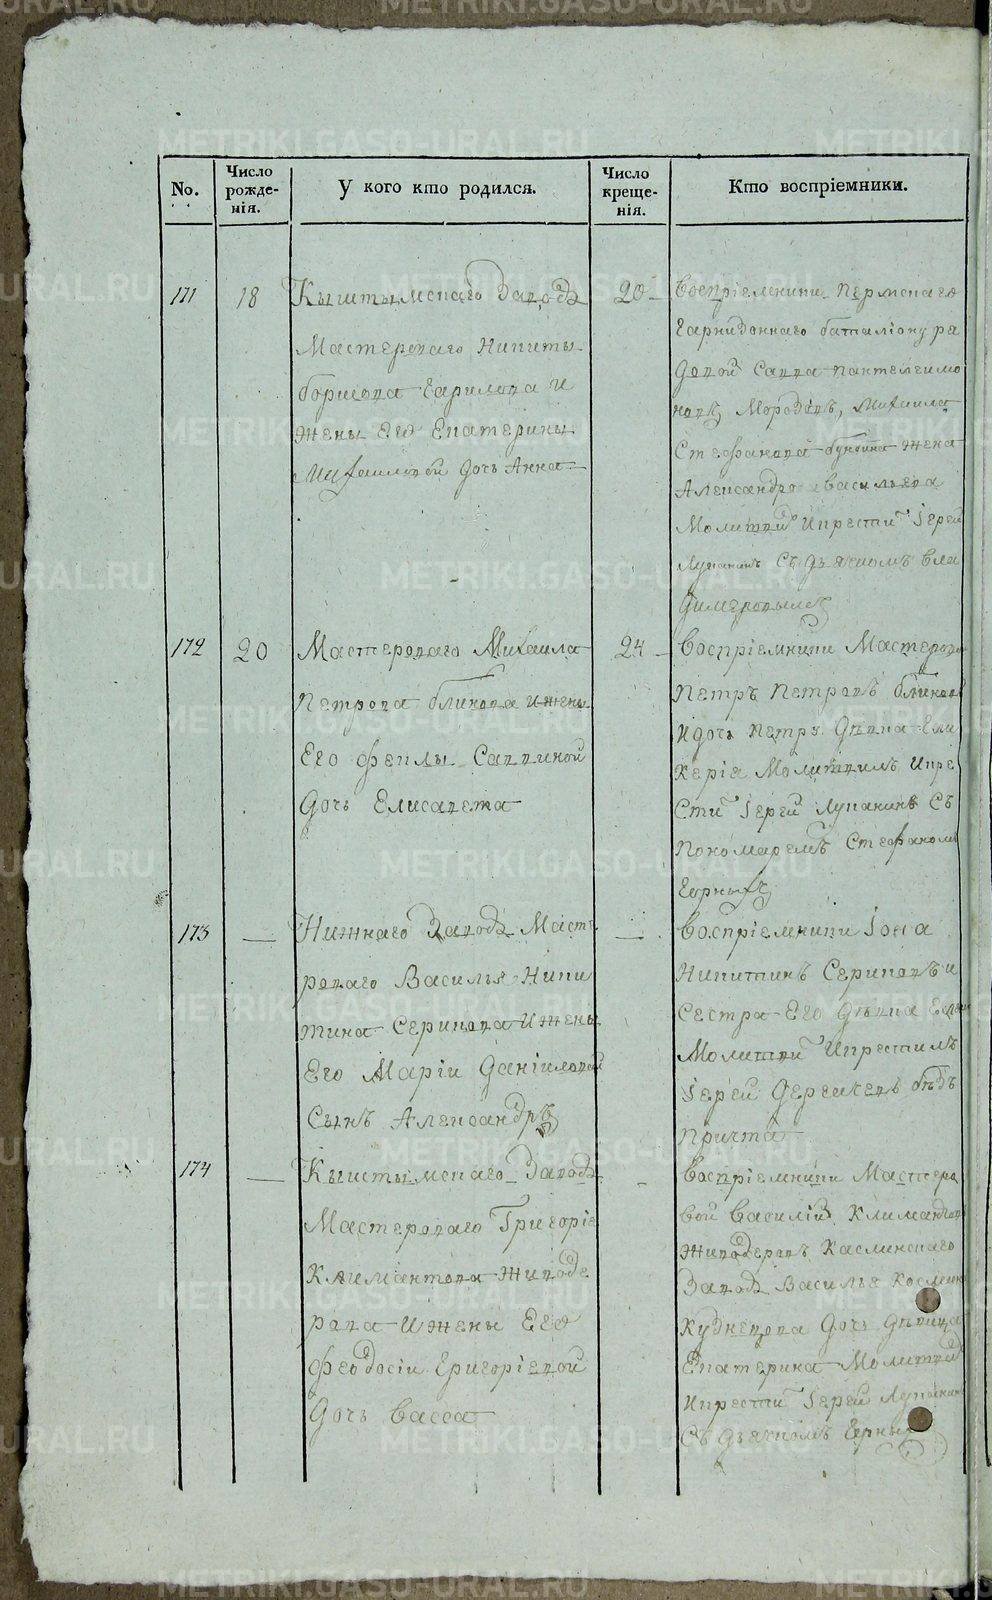 No.
Число рожде-нія.
У кого кто родился.
Число креще-нія.
Кто воспріемники.
171
18
Кыштымскаго Завода
Мастероваго Никиты
Борисова Гарилова и
жены Его Екатерины
Михаиловой дочь Анна
20
Воспріемники Пермскаго
Гарнизоннаго баталіону ря
довой Савва Пантелеимо
новъ Морозовъ, Михаила
Стефанова жена
Александра Васильева
Молитвил и крестил Іерей
Лупанинъ Съ дьячкомъ Вла
димеровымъ
172
20
Мастероваго Михаила
Петрова Блинова и жены
Его Феклы Саввиной
дочь Елисавета
24
Воспріемники Мастеров
Петръ Петровъ Блинов
и дочь Петру девка Гли
керіа Молитвилъ и кре
стил Іерей Лупанинъ Съ
Пономаремъ Стефаномъ
Горныхъ
173
Нижнаго Завода Масте
роваго Василья Ники
тина Серикова и жены
Его Маріи Даніиловой
Сынъ Александръ
Воспріемники Іона
Никитинъ Сериковъ и
Сестра Его девка
Молитвил и крестилъ
Іерей Дергачевъ безъ
причта
174
Кыштымскаго Завода
Мастероваго Григоріе
Климантова Живоде
рова и жены Его
Феодосіи Григоріевой
дочь Васса
Воспріемники Мастеро
вой Василій Климантов
Живодеровъ Каслинскаго
Завода Василья Космин
Кузнецова дочь девица
Екатерина Молитвил
и крестил Іерей Лупанин
Съ дьячкомъ Горных
METRIKI.GASO-URAL.RU